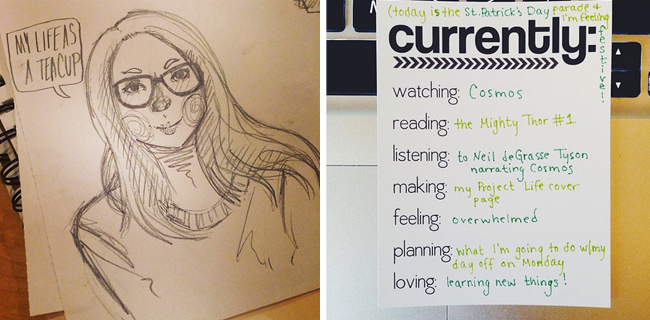 MY LIFE AS
A TEACUP
(today is the St.Patrick's Day parade +
I'm feeling
festive!
currently:
watching: Cosmos
reading: the Mighty Thor #1
listening: to Neil deGrasse Tyson
narrating Cosmos
making: my Project Life cover
page
feeling: overwhelmed
planning: what I'm going to do w/my
day off on Monday
loving: learning new things!